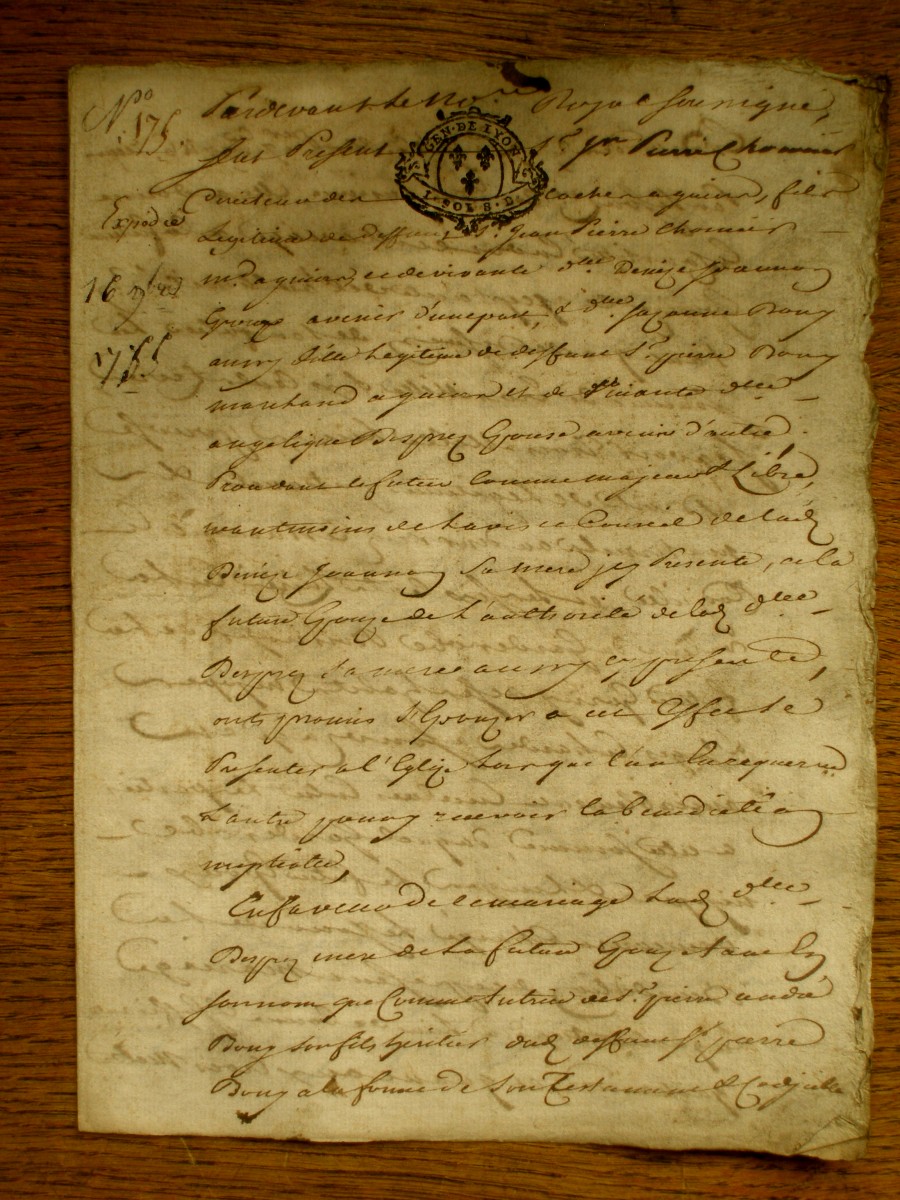 N.º
175.
Expedié
16 9bre
1755
GEN. DE LYON
1. SOL 8. D.
Pardevant le Nore Royal soussigné,
fut Present Sr. Jn Pierre Chomier
Directeur des coches a quiers, fils
Legitime de deffunt Sr. Jean Pierre Chomier
md. a quiers, et de vivante dlle. Denize Joannon
Epoux avenir d'une part, & dlle. Suzanne Bouy
aussy fille Legitime de deffunt Sr. pierre Bouy
marchand a quiers et de vivante dlle.
angelique Desprez Epouse avenir d'autre.
Procedant le futur Comme majeur & Libre,
neantmoins de Lavis et Conseil de lad.
Denize Joannon Sa mere icy Presente, et la
future Epouse de L'authorité de lad. dlle
Desprez Sa mere aussy icy presente,
ont promis S'Epouzer a cet Effect se
Presenter a l'Eglize Lors que l'un En requerra
L'autre pour y recevoir la benediction
nuptialle,
En faveur de ce mariage Lad. dlle
Desprez mere de la future Epouze tant En
son nom que Comme tutrice de Sr. pierre andré
Bouy son fils heritier dud. deffunt Sr. pierre
Bouy a la forme de Son Testament & Codicille